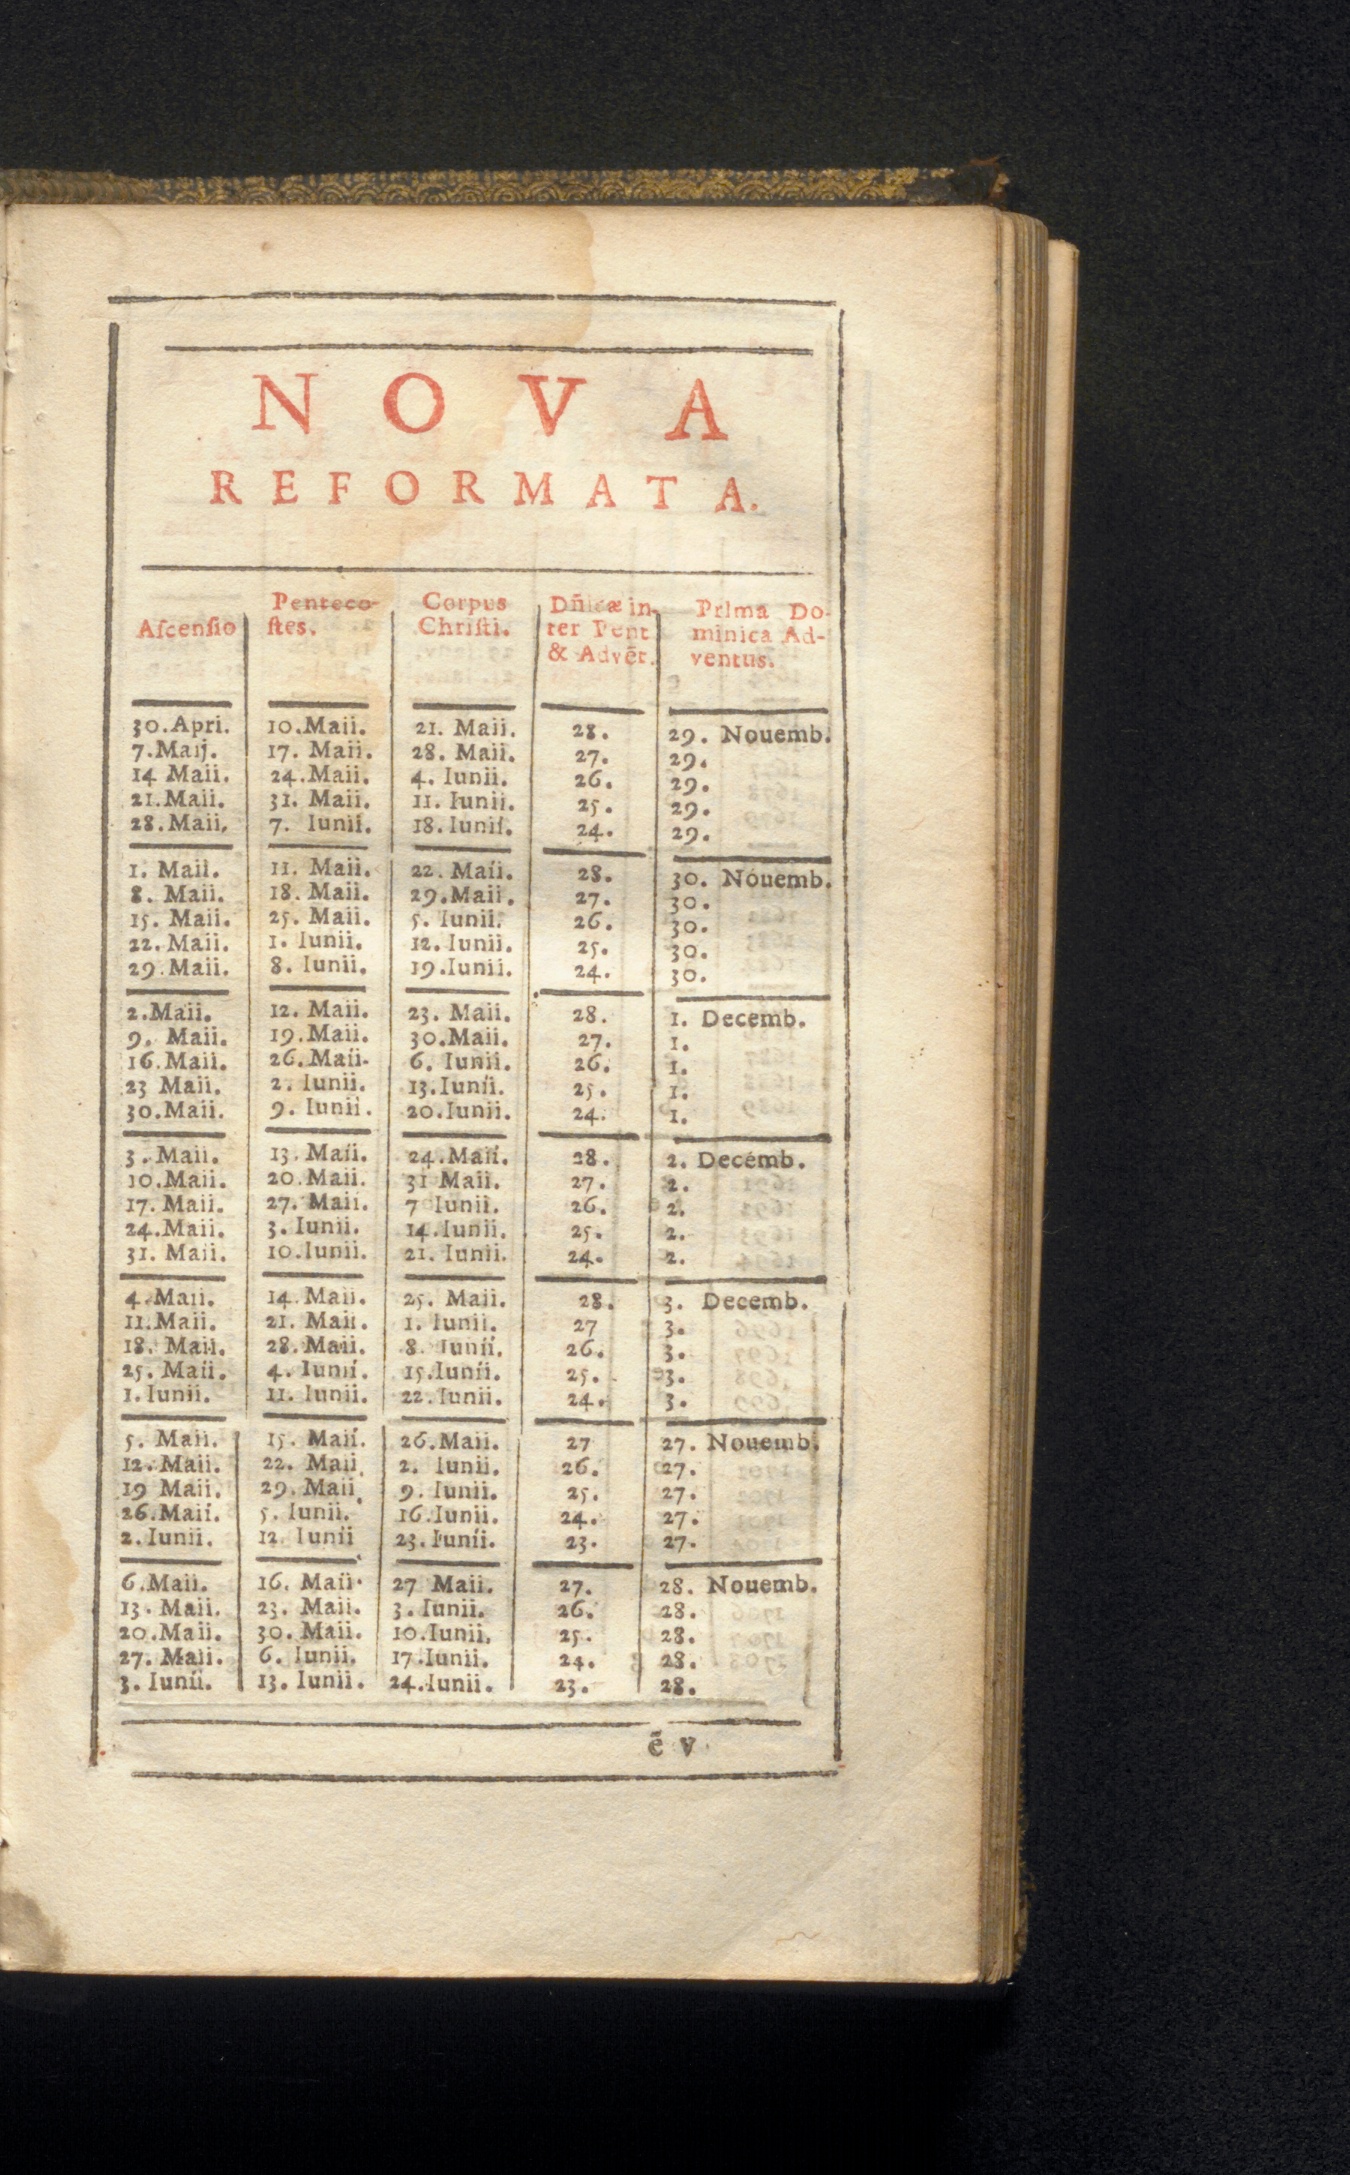 NOVA
REFORMATA.
Aſcenſio Penteco-ſtes. Corpus Chriſti. Dn̄icæ in-ter Pent & Advēt. Prima Do-minica Ad-ventus.
30.Apri. 10.Maii. 21. Maii. 28. 29. Nouemb.
7.Maij. 17. Maii. 28. Maii. 27. 29.
14 Maii. 24.Maii. 4. Iunii. 26. 29.
21.Maii. 31. Maii. 11. Iunii. 25. 29.
28.Maii, 7. Iunii. 18.Iunii. 24. 29.
1. Maii. 11. Maii. 22. Maii. 28. 30. Nouemb.
8. Maii. 18. Maii. 29.Maii. 27. 30.
15. Maii. 25. Maii. 5. Iunii. 26. 30.
22. Maii. 1. Iunii. 12. Iunii. 25. 30.
29.Maii. 8. Iunii. 19.Iunii. 24. 30.
2.Maii. 12. Maii. 23. Maii. 28. 1. Decemb.
9. Maii. 19.Maii. 30.Maii. 27. 1.
16.Maii. 26.Maii. 6. Iunii. 26. 1.
23 Maii. 2. Iunii. 13.Iunii. 25. 1.
30.Maii. 9. Iunii. 20.Iunii. 24. 1.
3. Maii. 13. Maii. 24.Maii. 28. 2. Decemb.
10.Maii. 20.Maii. 31 Maii. 27. 2.
17. Maii. 27. Maii. 7 Iunii. 26. 2.
24.Maii. 3. Iunii. 14.Iunii. 25. 2.
31. Maii. 10.Iunii. 21. Iunii. 24. 2.
4.Maii. 14. Maii. 25. Maii. 28. 3. Decemb.
11.Maii. 21. Maii. 1. Iunii. 27 3.
18. Maii. 28. Maii. 8. Iunii. 26. 3.
25. Maii. 4. Iunii. 15.Iunii. 25. 3.
1. Iunii. 11. Iunii. 22.Iunii. 24. 3.
5. Maii. 15. Maii. 26.Maii. 27 27. Nouemb.
12. Maii. 22. Maii 2. Iunii. 26. 27.
19 Maii. 29. Maii 9. Iunii. 25. 27.
26.Maii. 5. Iunii. 16.Iunii. 24. 27.
2. Iunii. 12. Iunii 23. Iunii. 23. 27.
6.Maii. 16. Maii. 27 Maii. 27. 28. Nouemb.
13. Maii. 23. Maii. 3. Iunii. 26. 28.
20.Maii. 30. Maii. 10.Iunii. 25. 28.
27. Maii. 6. Iunii. 17.Iunii. 24. 28.
3. Iunii. 13. Iunii. 24.Iunii. 23. 28.
ē v